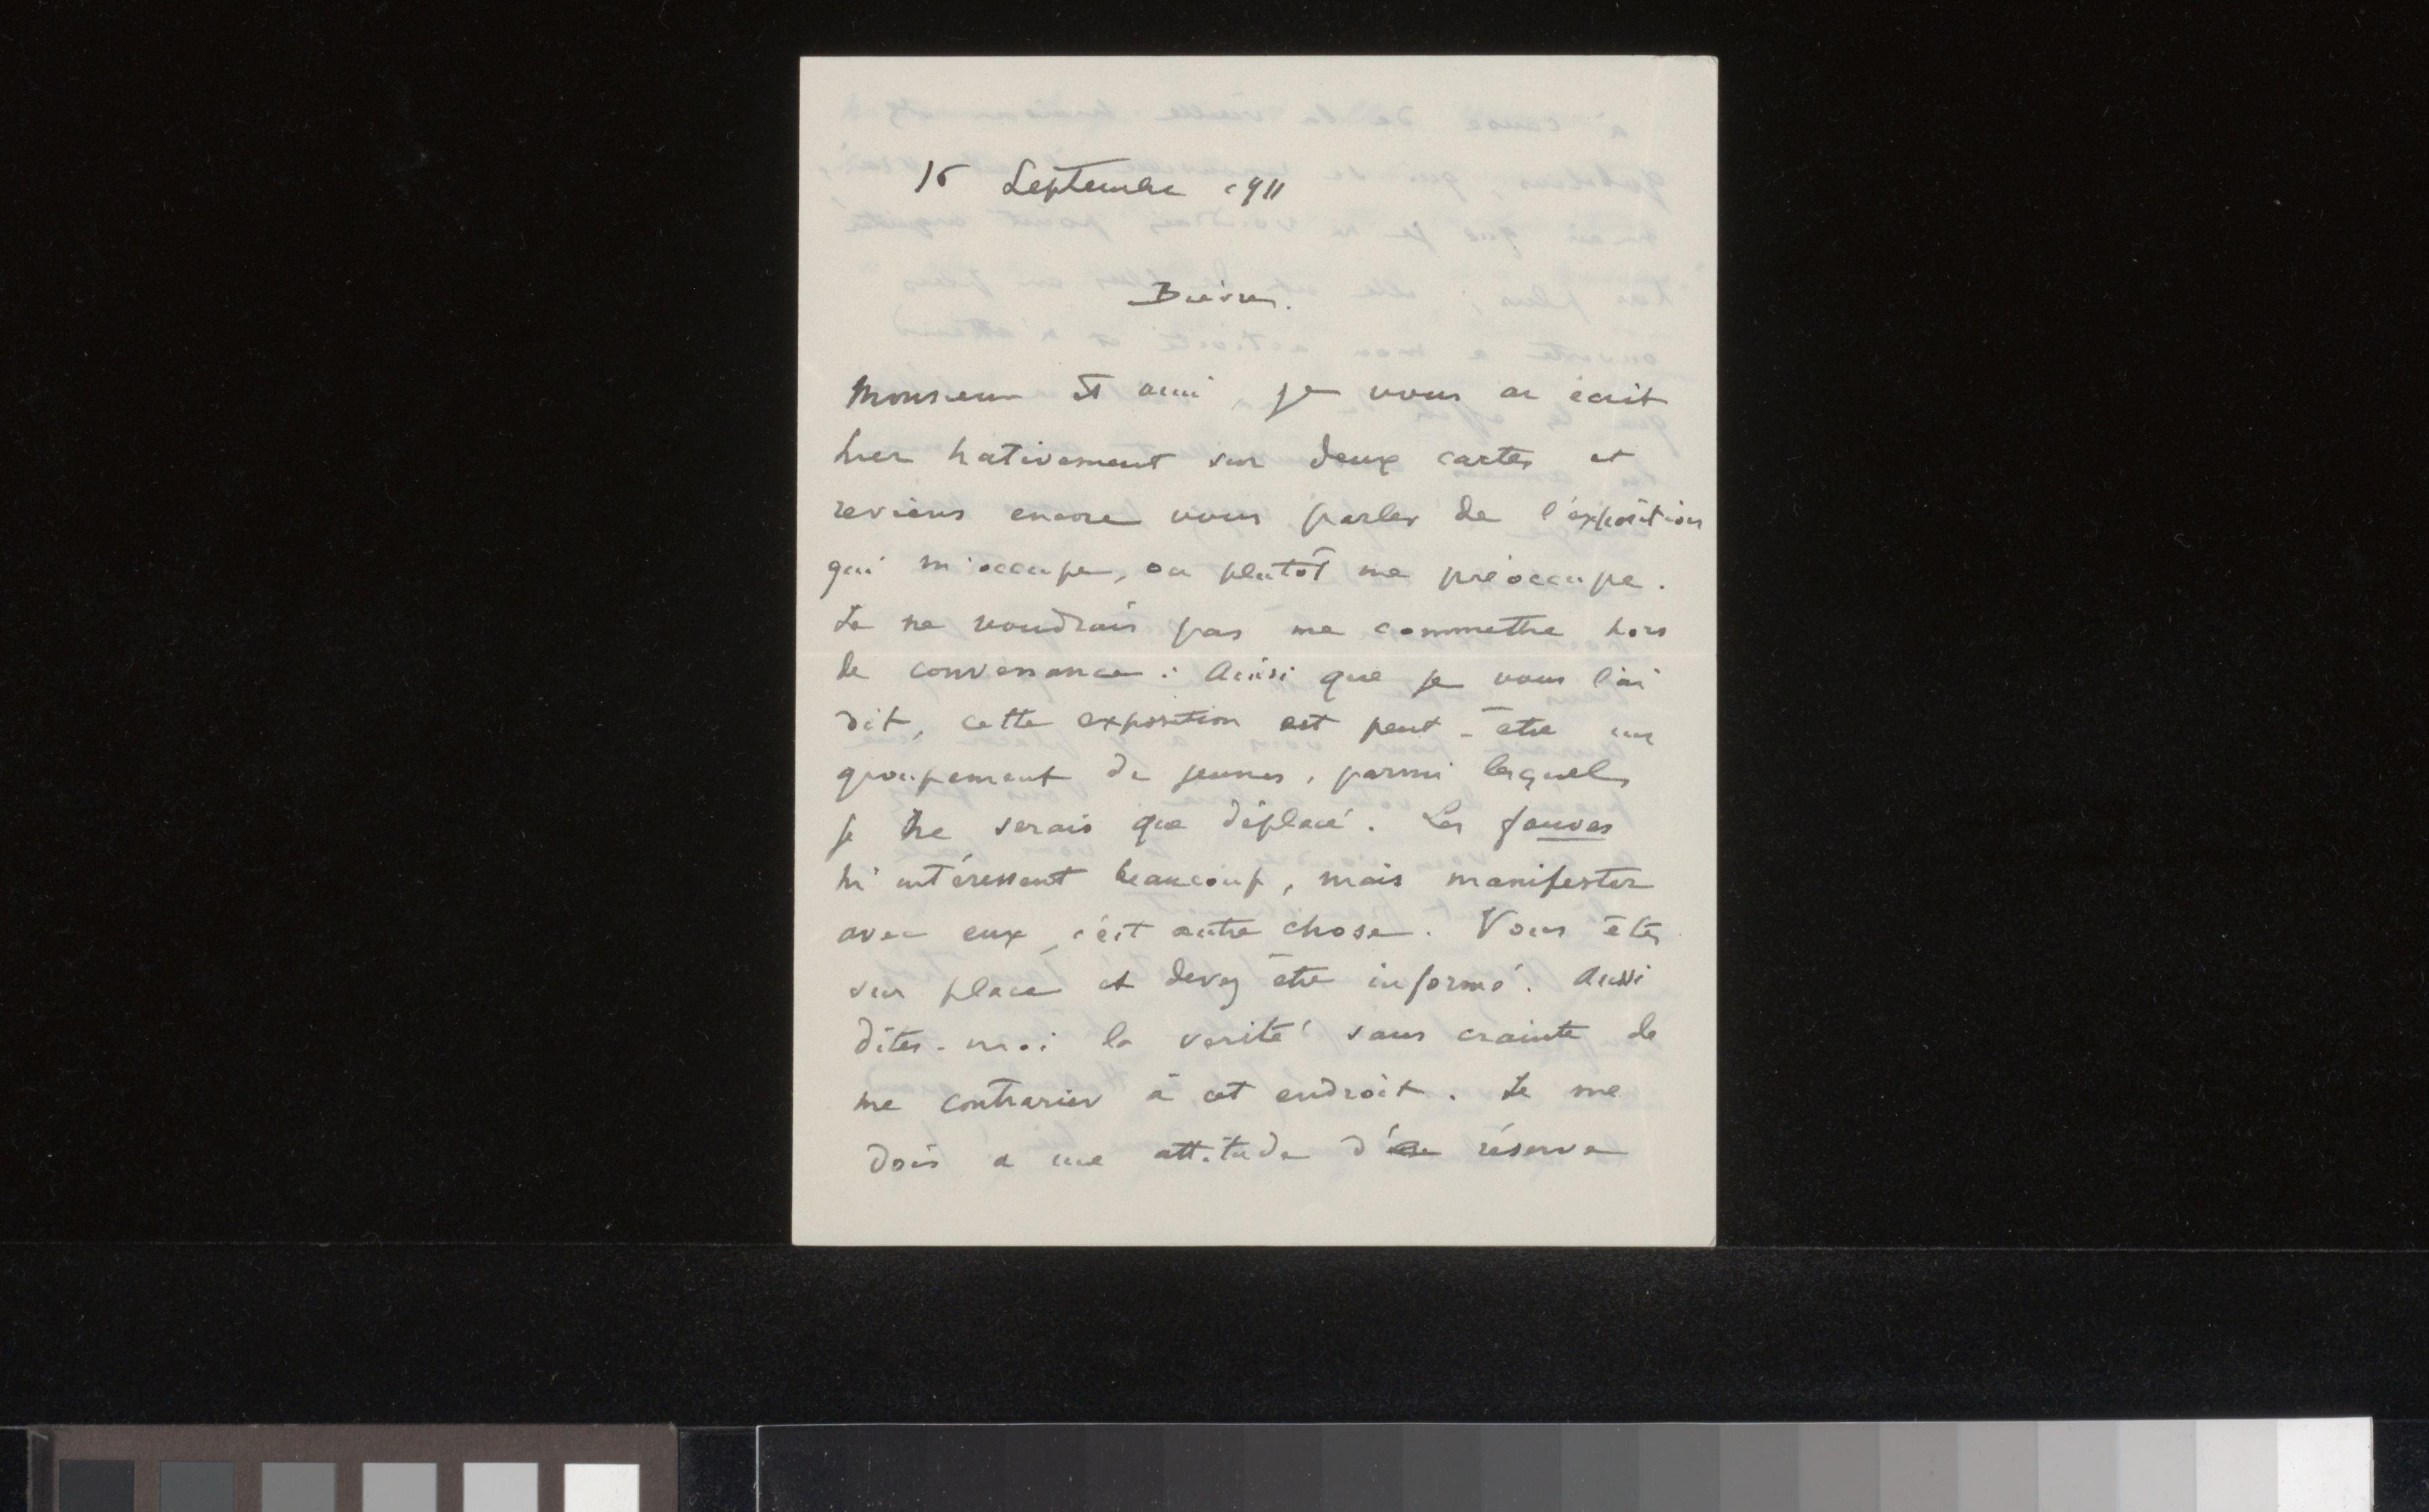 15 Septembre 1911
Bièvres.
Monsieur et ami, je vous ai écrit
hier hativement sur deux cartes et
reviens encore vous parler de l'exposition
qui m'occupe, ou plutôt me préoccupe.
Je ne voudrais pas me commettre hors
de convenance : Ainsi que je vous l'ai
dit, cette exposition est peut-être un
groupement de jeunes, parmi lesquels
je ne serais que déplacé. Les fauves
m'intéressent beaucoup, mais manifester
avec eux, c'est autre chose. Vous êtes
sur place et devez être informé. Aussi
dites-moi la verité sans crainte de
me contrarier à cet endroit. Je me
dois a une attitude de réserve